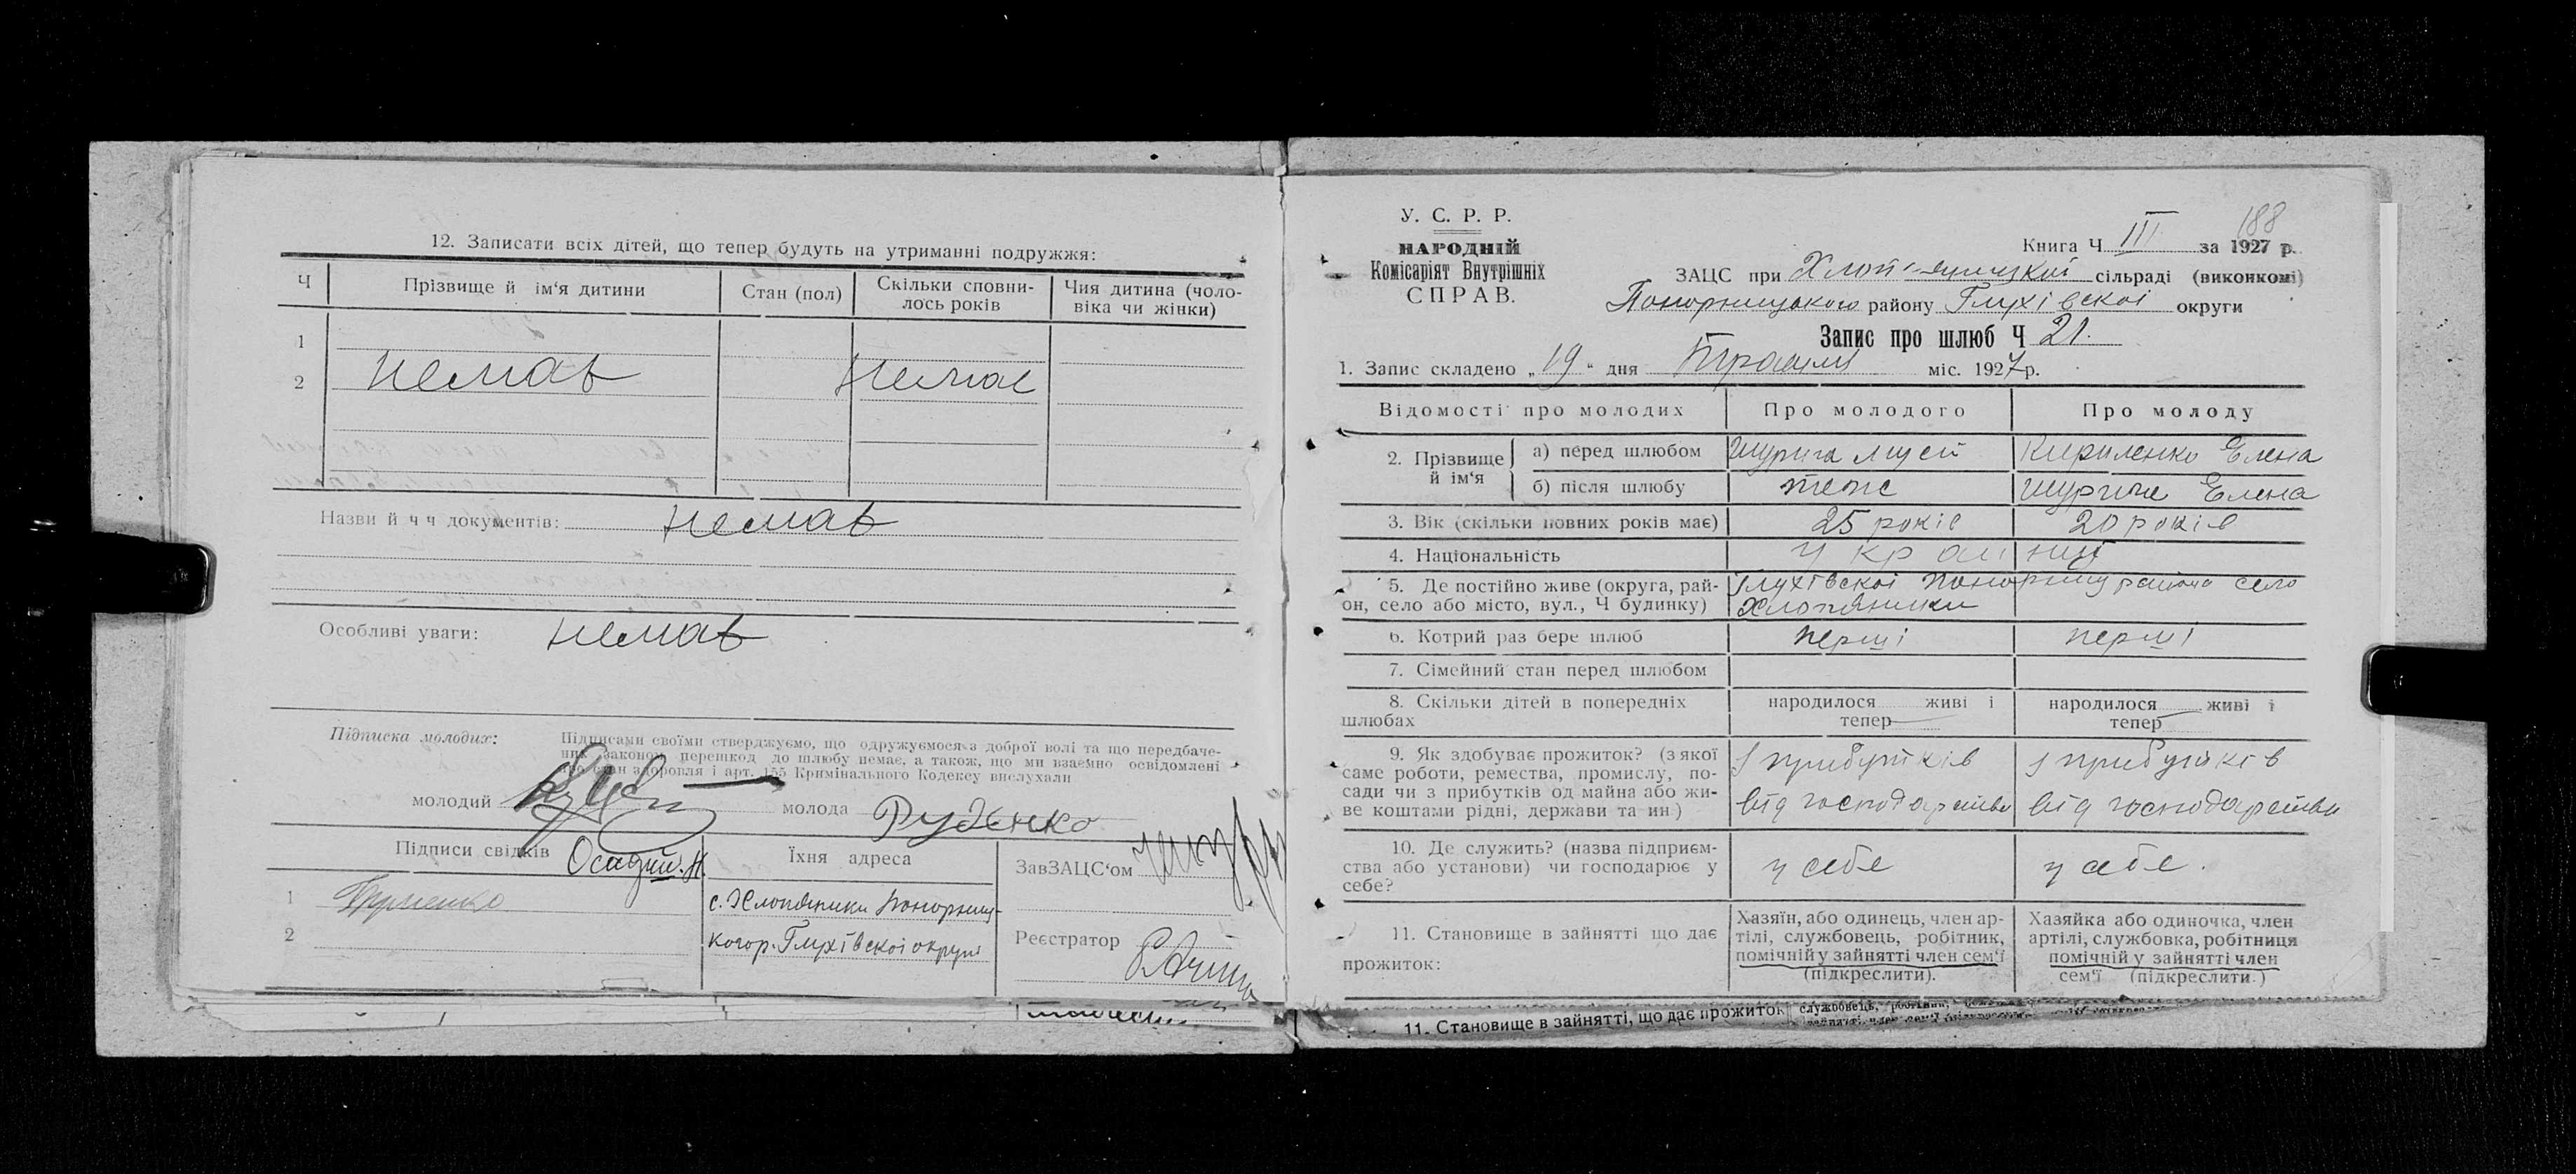 12. Записати всіх дітей, що тепер будуть на утриманні подружжя:
Ч Прізвище й ім‘я дитини Стан (пол) Скільки сповни-лось років Чия дитина (чоло-віка чи жінки)
1
2 Немає Немає
Назви й ч ч документів: Немає
Особливі уваги: Немає
Підписка молодих: Підписами своїми стверджуємо, що одружуємося з доброї волі та що передбаче-
них законом перешкод до шлюбу немає, а також, що ми взаємно освідомлені
про стан здоровля і арт. 155 Кримінального Кодексу вислухали
молодий молода Руденко
Підписи свідків Їхня адреса ЗавЗАЦС‘ом
1 с. Хлопяники Понорниц-
2 когор. Глухівскоі округи Реєстратор
У. С. Р. Р.
НАРОДНІЙ
Комісаріят Внутрішніх
СПРАВ.
188
Книга Ч III за 1927 р.
ЗАЦС при сільраді (виконкомі)
Понорницького району Глухівскоі округи
Запис про шлюб Ч 21.
1. Запис складено „19“ дня Травня міс. 1927 р.
Відомості про молодих Про молодого Про молоду
2. Прізвище й ім‘я а) перед шлюбом Шурига Мусій Кириленко Елена
б) після шлюбу теже Елена
3. Вік (скільки повних років має) 25 років 20 років
4. Національність україниці
5. Де постійно живе (округа, рай- Глухівскоі Понорниц района село
он, село або місто, вул., Ч будинку) Хлопяники
6. Котрий раз бере шлюб перші перші
7. Сімейний стан перед шлюбом
8. Скільки дітей в попередніх народилося живі і народилося живі і
шлюбах тепер тепер
9. Як здобуває прожиток? (з якої з прибутків з прибутків
саме роботи, ремества, промислу, по-
сади чи з прибутків од майна або жи- від господарства від господарства
ве коштами рідні, держави та ин.)
10. Де служить? (назва підприєм-
ства або установи) чи господарює у у себе у себе.
себе?
11. Становище в зайнятті що дає
прожиток:
Хазяїн, або одинець, член ар-
тілі, службовець, робітник,
помічній у зайнятті член сем‘ї
(підкреслити).
Хазяйка або одиночка, член
артілі, службовка, робітниця
помічній у зайнятті член
сем‘ї (підкреслити.)
11. Становище в зайнятті, що дає прожиток службовець, робітник,